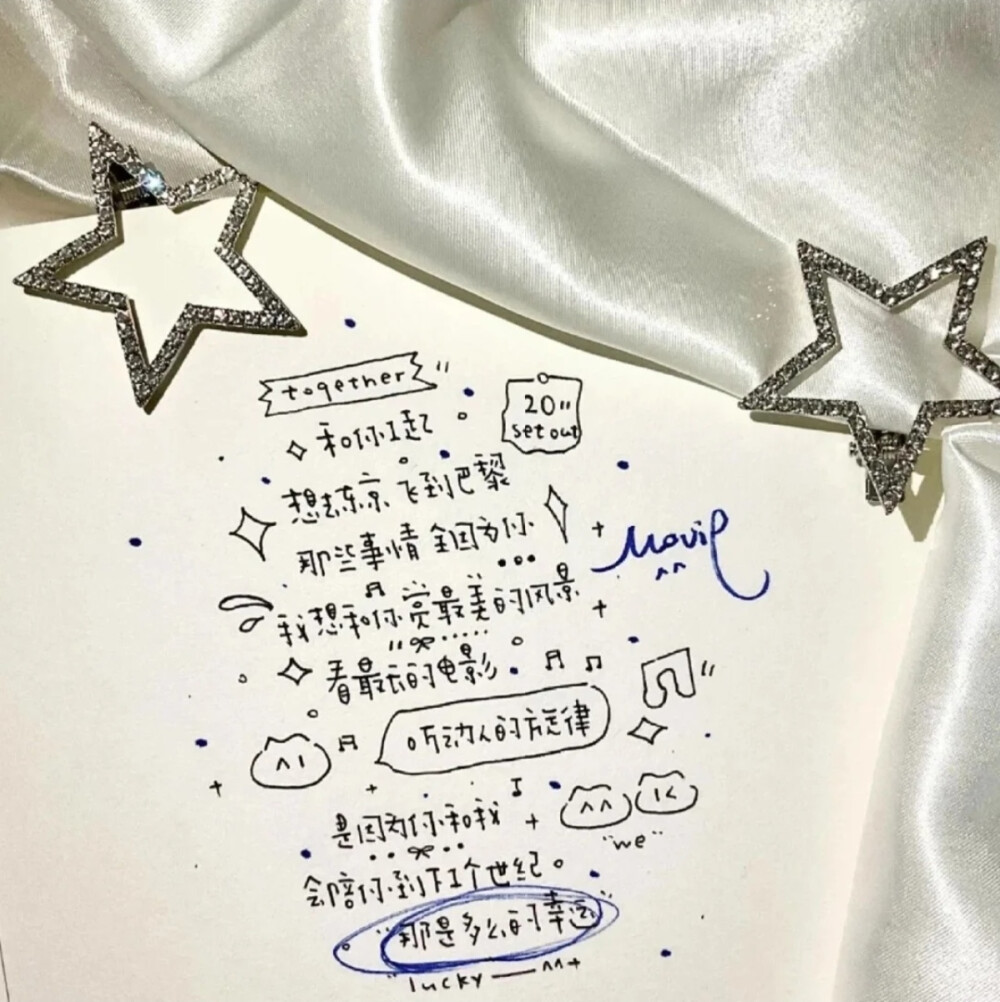 together
20"
set out
和你1起
想去东京 飞到巴黎
那些事情 全因为你
Movie
我想和你赏最美的风景
看最长的电影
听动人的旋律
是因为你和我
"we"
会陪你到下1个世纪。
"那是多么的幸运"
"lucky